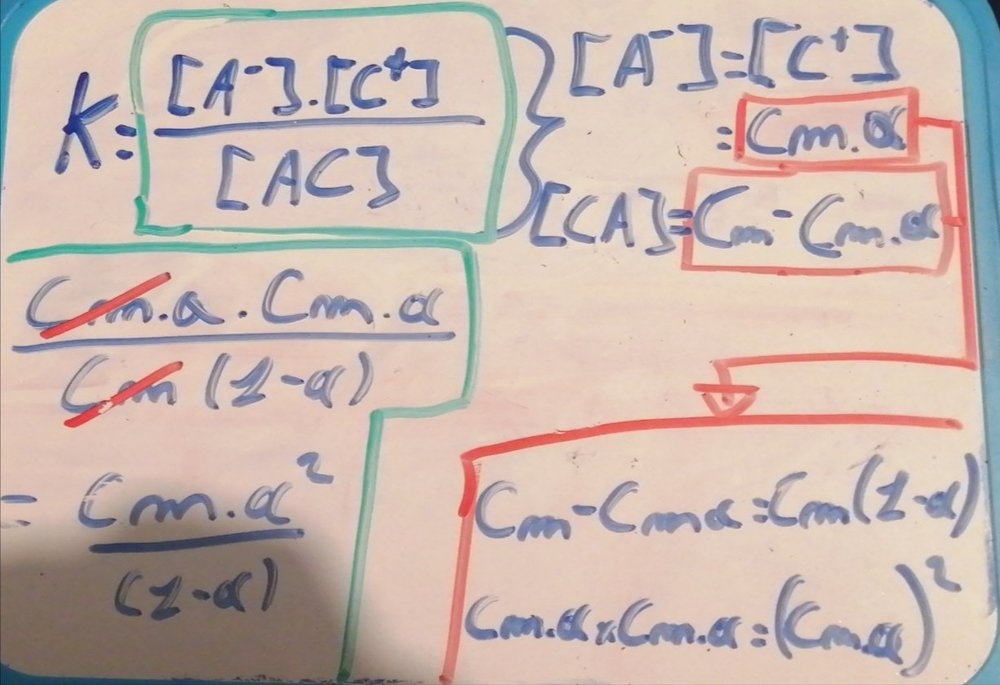 K = [A⁻].[C⁺] / [AC]
[A⁻] = [C⁺]
= Cm.α
[CA] = Cm - Cm.α
Cm.α . Cm.α / Cm (1-α)
= Cm.α² / (1-α)
Cm - Cmα = Cm(1-α)
Cm.α x Cm.α = (Cm.α)²